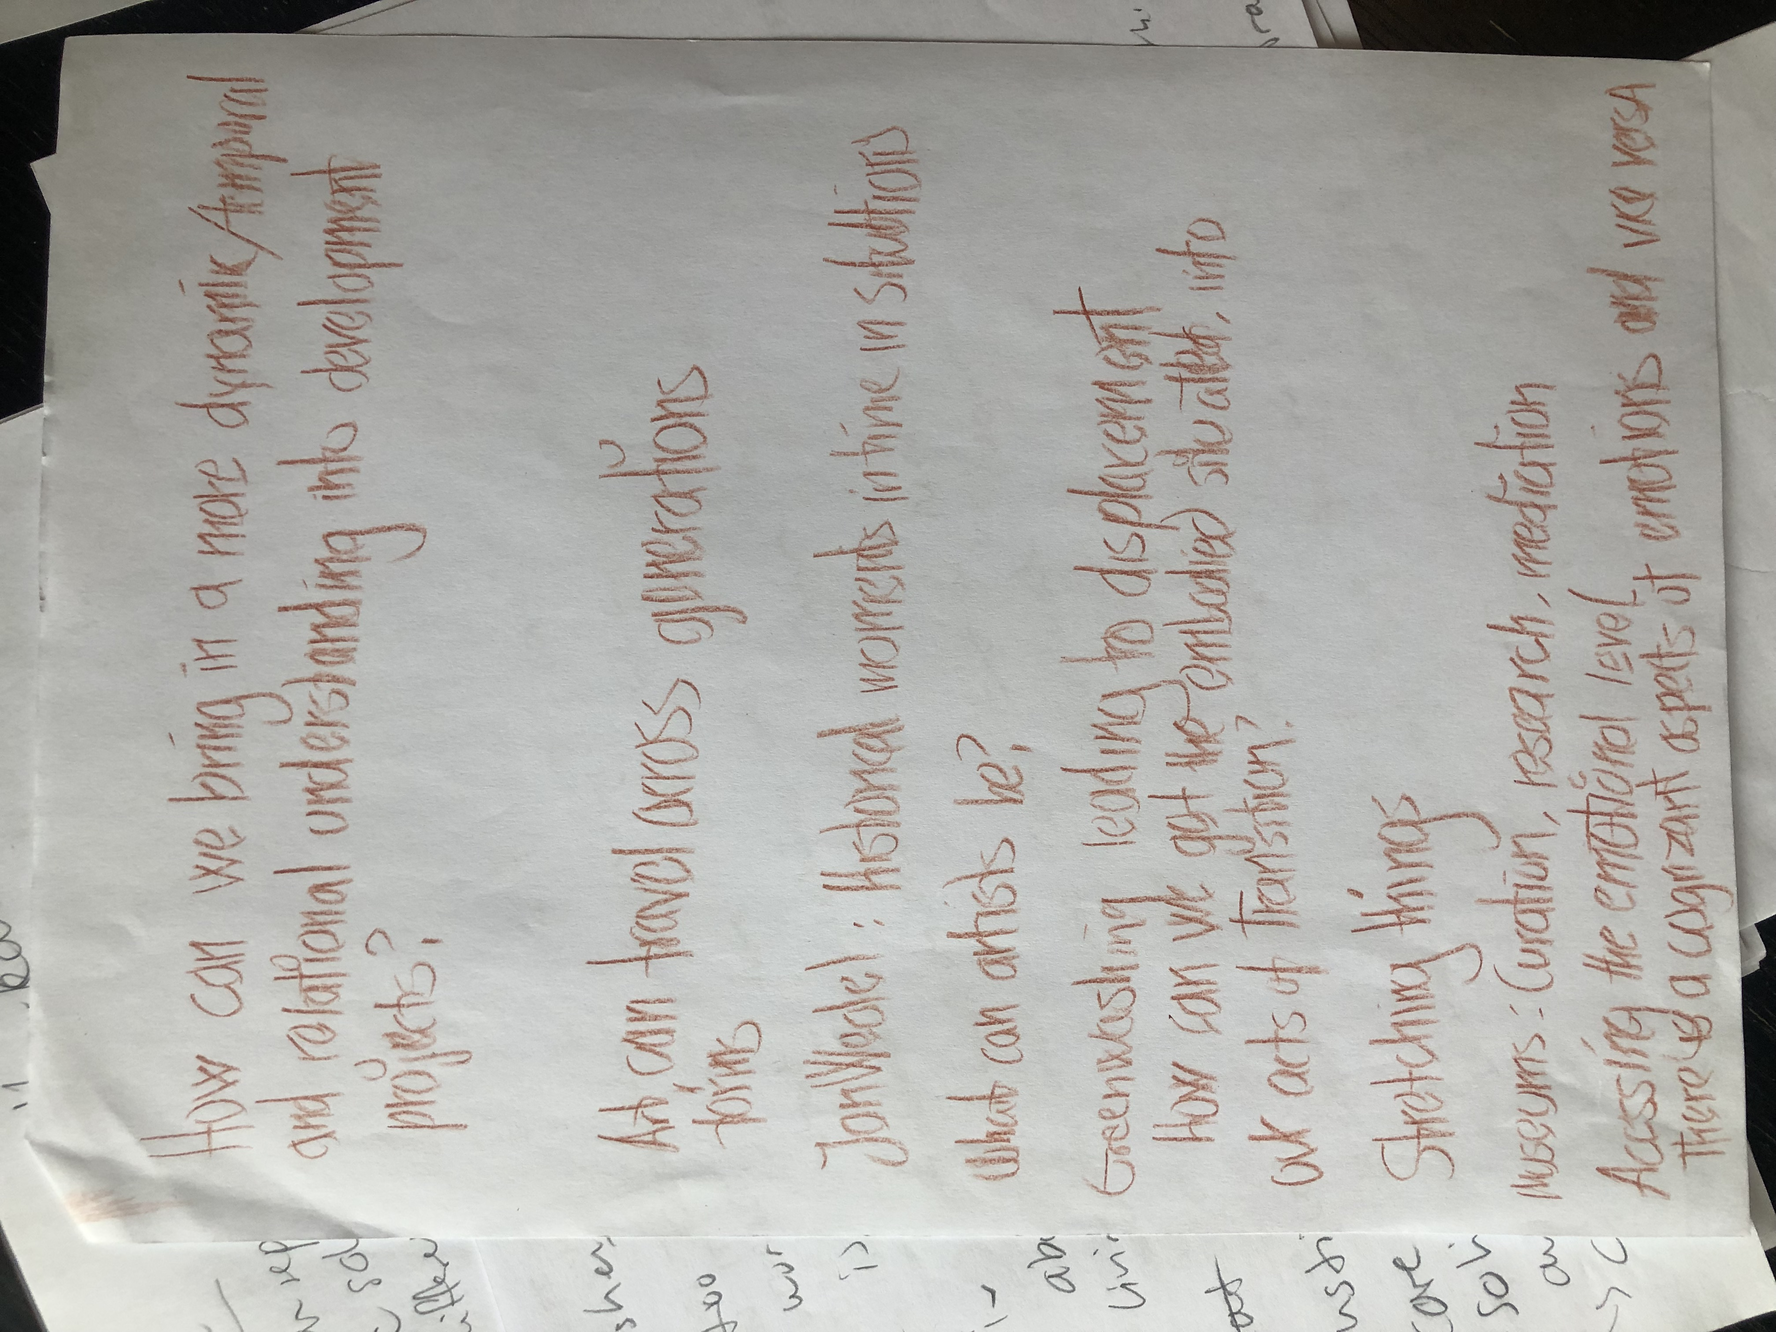 How can we bring in a more dynamic/temporal
and relational understanding into development
projects?
Art, can travel across generations
forms
Jan Wedel: Historical moments in time in situations
What can artists be?
Greenwashing leading to displacement
How can we get the embodied situation, into
our acts of transition?
Stretching things
museums: Curation, research, mediation
Accessing the emotional level
There is a cognizant aspects of emotions and vice versa